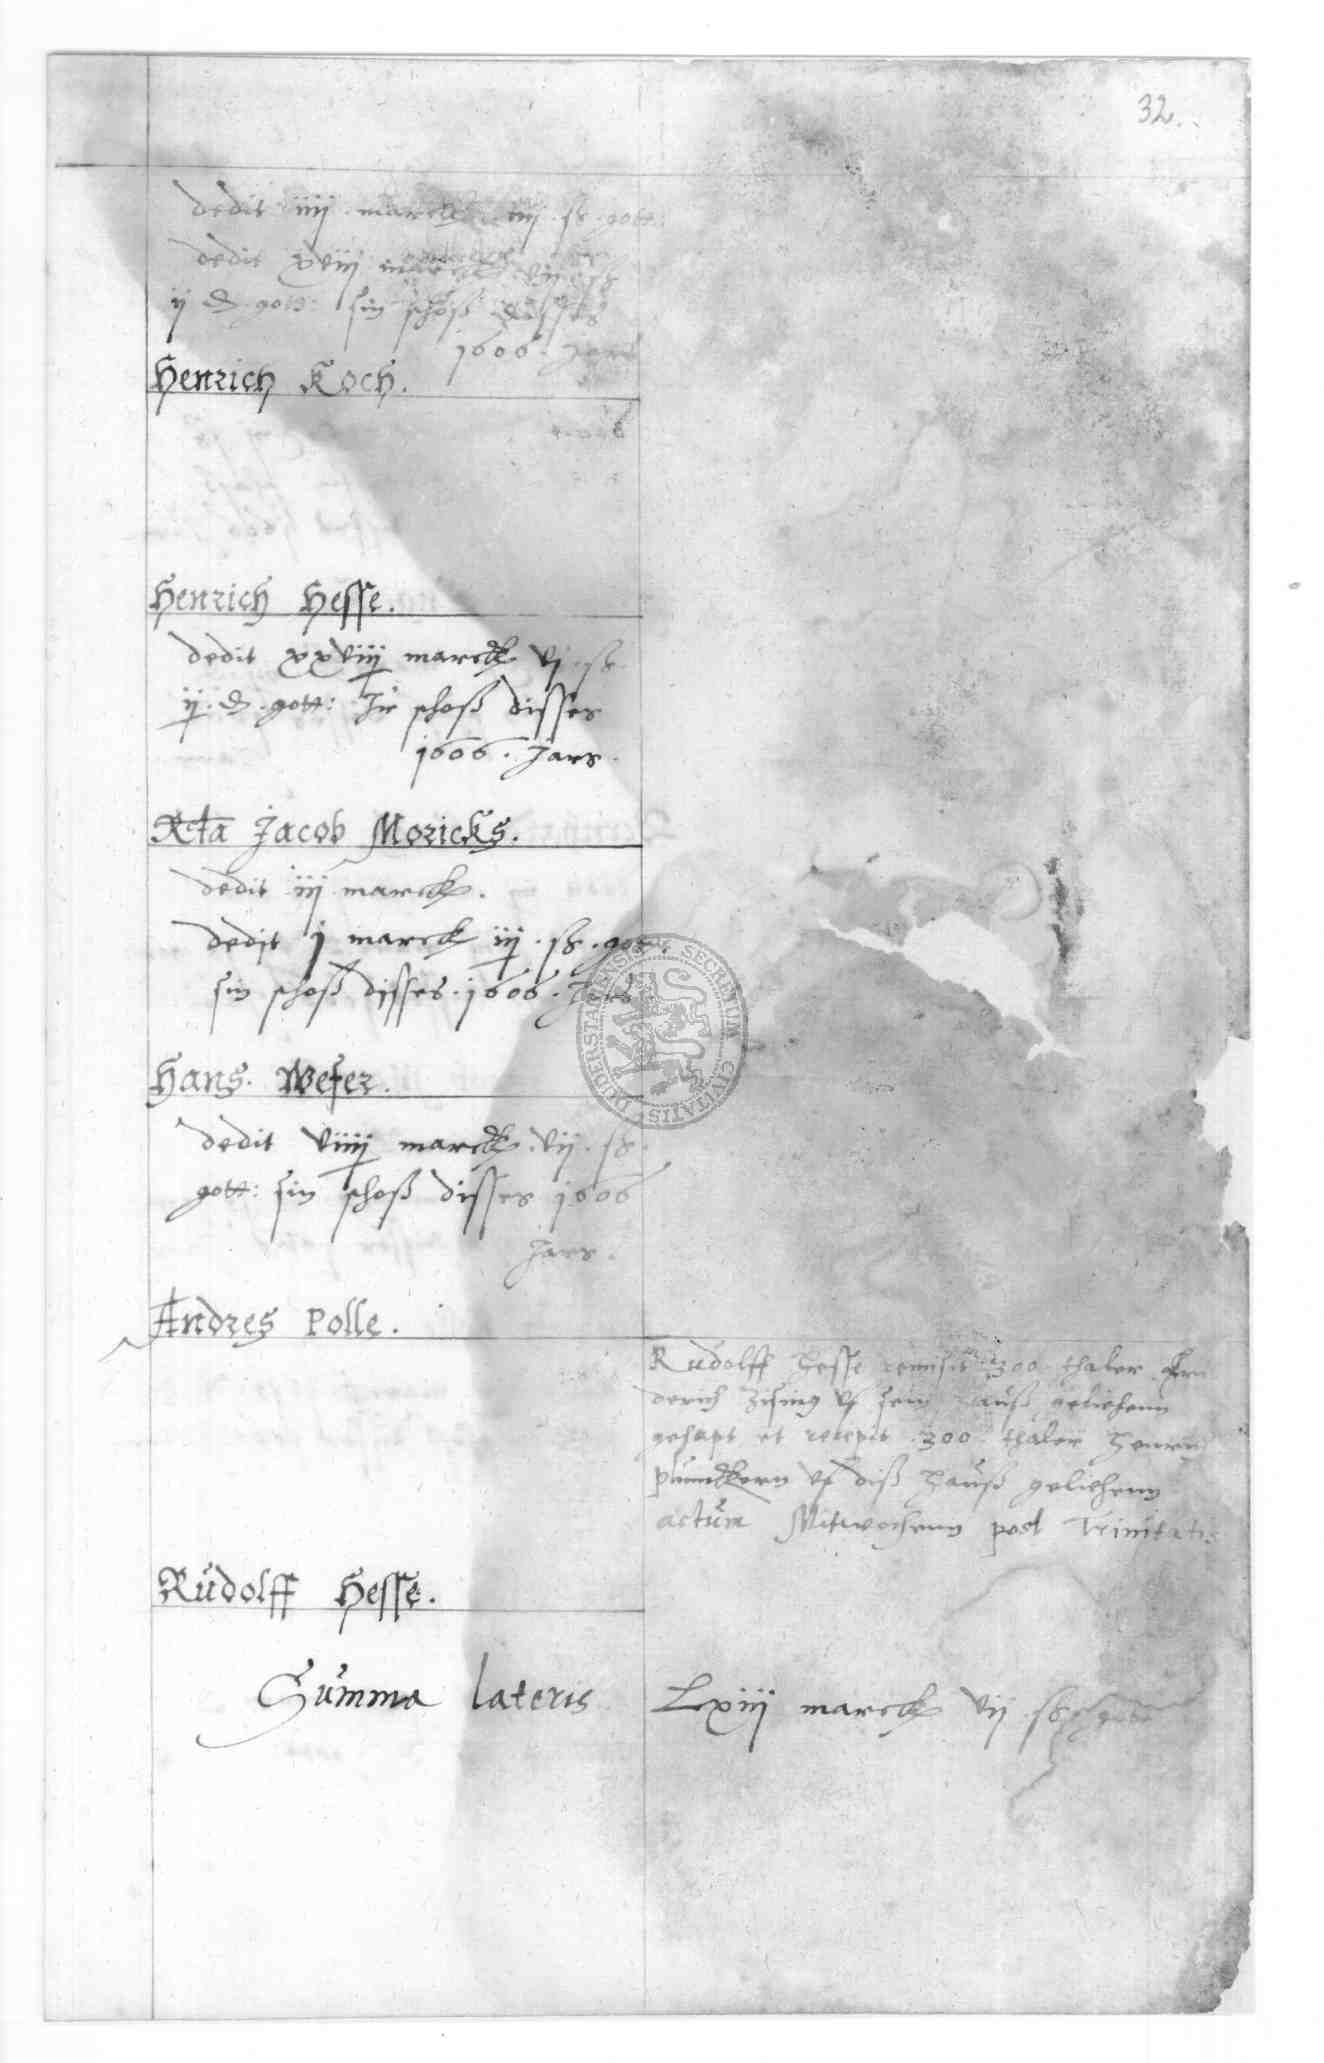 32.
dedit iiij marck iiij ss gott:
dedit xviij marck vij ss
ij d gott: sin schoß disses
1606. Jars
Henrich Koch.
Henrich Hesse.
dedit xxviiij marck vj ss
ij. d. gott: Ir schoß disses
1606. Jars.
Rcta Jacob Moricks.
dedit iij marck.
dedit j marck iij. ss. gott:
sin schoß disses. 1606. Jars
Hans. Wefer.
dedit viiij marck. vij. ss.
gott: sin schoß disses 1606
Jars.
Andres Polle.
Rudolff Hesse remisit 300 thaler
derich Zising uf sein hauß geliehenn
gehapt et recepit .300. thaler Henrich
uf diß hauß geliehenn
actum Mitwochenn post Trinitatis
Rudolff Hesse.
Summa lateris Lxiij marck vij ss gott
SECRETUM CIVITATIS DUDERSTATENSIS